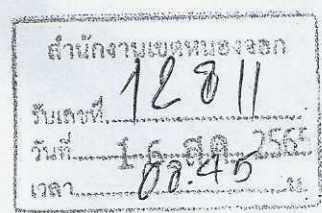 สำนักงานเขตหนองจอก
รับเลขที่ 12811
วันที่ 16 2565
เวลา 08.45 น.